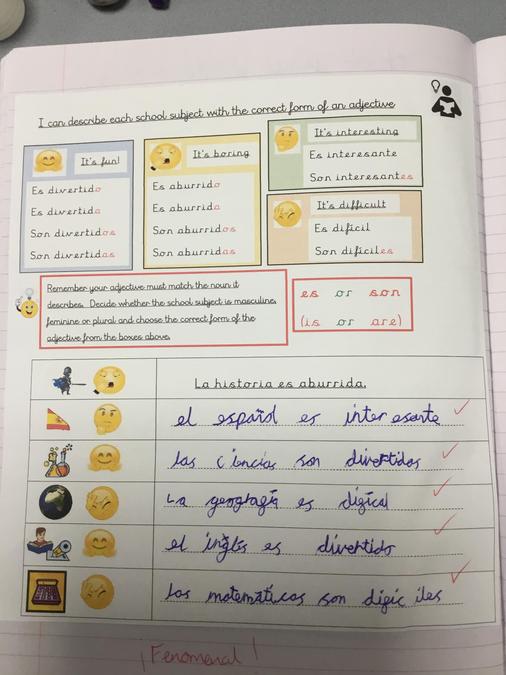 I can describe each school subject with the correct form of an adjective
It's fun!
Es divertido
Es divertida
Son divertidos
Son divertidas
It's boring
Es aburrido
Es aburrida
Son aburridos
Son aburridas
It's interesting
Es interesante
Son interesantes
It's difficult
Es difícil
Son difíciles
Remember your adjective must match the noun it
describes. Decide whether the school subject is masculine,
feminine or plural and choose the correct form of the
adjective from the boxes above.
es or son
(is or are)
La historia es aburrida.
el español es interesante
las ciencias son divertidas
La geografía es difícil
el inglés es divertido
las matemáticas son difíciles
¡Fenomenal!